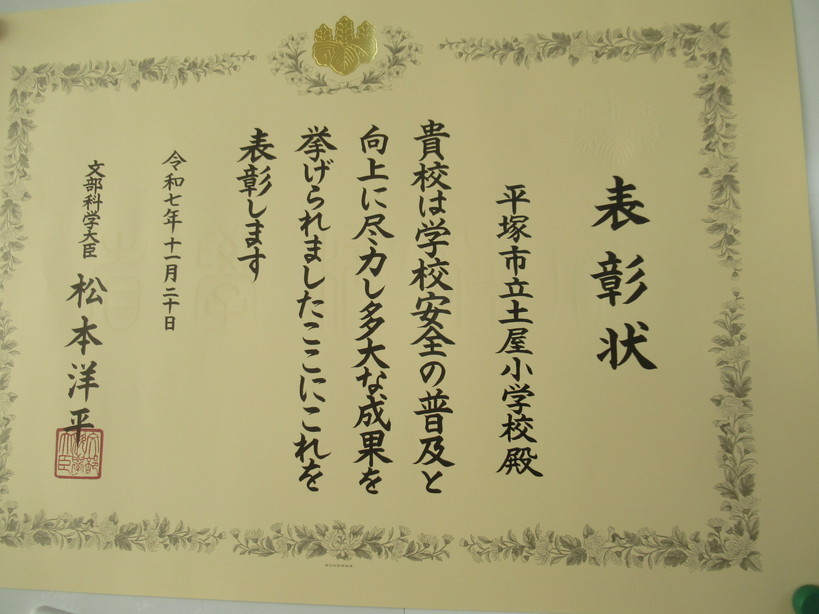 表彰状
平塚市立土屋小学校殿
貴校は学校安全の普及と
向上に尽力し多大な成果を
挙げられましたここにこれを
表彰します
令和七年十一月二十日
文部科学大臣 松本洋平